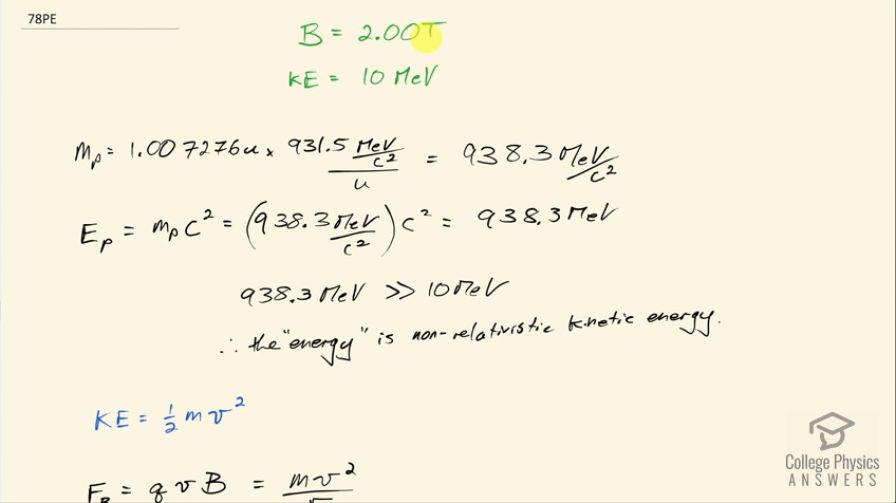 78PE
B = 2.00T
KE = 10 MeV
m_p = 1.007276u × 931.5 (MeV/c²)/u = 938.3 MeV/c²
E_p = m_p c² = (938.3 MeV/c²) c² = 938.3 MeV
938.3 MeV >> 10 MeV
∴ the "energy" is non-relativistic kinetic energy.
KE = ½ m v²
F_B = q v B = mv²
College Physics
ANSWERS